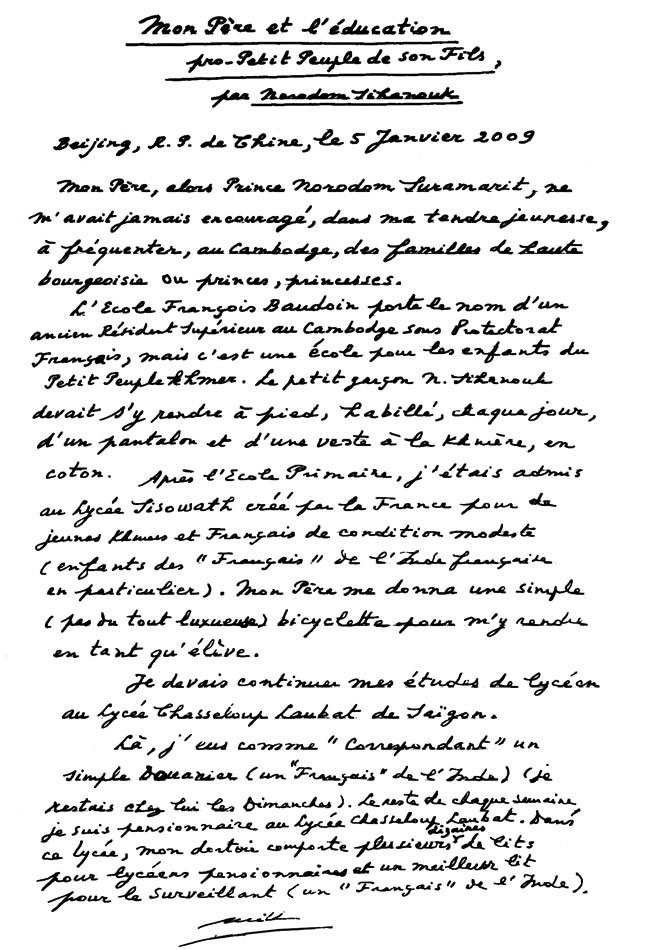 Mon Père et l'éducation
pro-Petit Peuple de son Fils,
par Norodom Sihanouk
Beijing, R. P. de Chine, le 5 Janvier 2009
Mon Père, alors Prince Norodom Suramarit, ne
m'avait jamais encouragé, dans ma tendre jeunesse,
à fréquenter, au Cambodge, des familles de haute
bourgeoisie ou princes, princesses.
L'Ecole François Baudoin porte le nom d'un
ancien Résident Supérieur au Cambodge sous Protectorat
Français, mais c'est une école pour les enfants du
Petit Peuple khmer. Le petit garçon N. Sihanouk
devait s'y rendre à pied, habillé, chaque jour,
d'un pantalon et d'une veste à la khmère, en
coton. Après l'Ecole Primaire, j'étais admis
au Lycée Sisowath créé par la France pour de
jeunes Khmers et Français de condition modeste
(enfants des "Français" de l'Inde française
en particulier). Mon Père me donna une simple
(pas du tout luxueuse) bicyclette pour m'y rendre
en tant qu'élève.
Je devais continuer mes études de lycéen
au Lycée Chasseloup Laubat de Saïgon.
Là, j'eus comme "Correspondant" un
simple Douanier (un "Français" de l'Inde) (je
restais chez lui les Dimanches). Le reste de chaque semaine
je suis pensionnaire au Lycée Chasseloup Laubat. Dans
ce lycée, mon dortoir comporte plusieurs dizaines de lits
pour lycéens pensionnaires et un meilleur lit
pour le Surveillant (un "Français" de l'Inde).